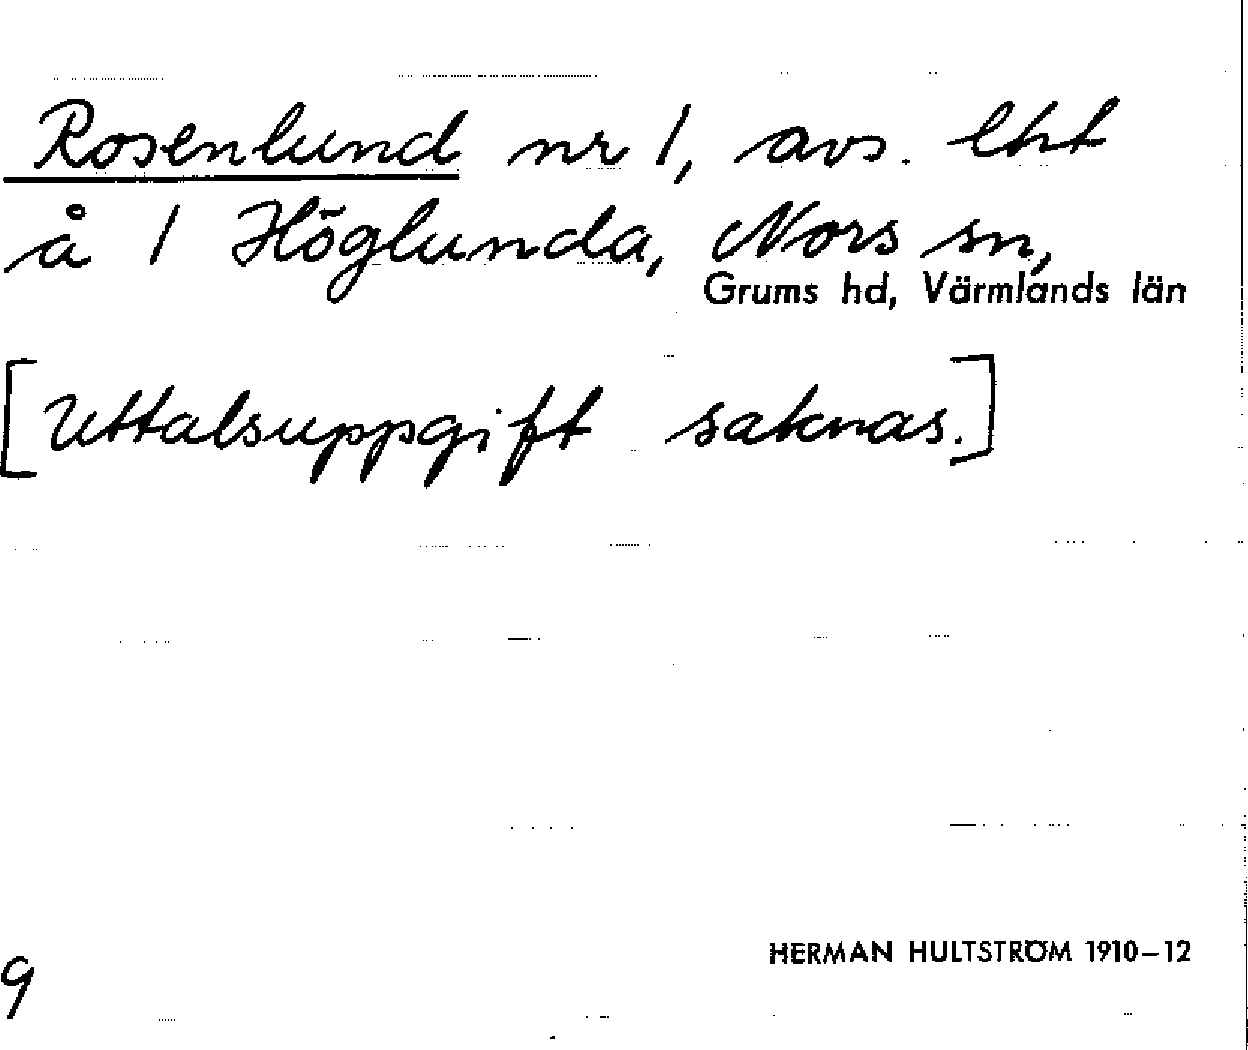 Rosenlund nr 1, avs. lht
å 1 Höglunda, Nors sn,
Grums hd, Värmlands län
[Uttalsuppgift saknas.]
HERMAN HULTSTRÖM 1910–12
9